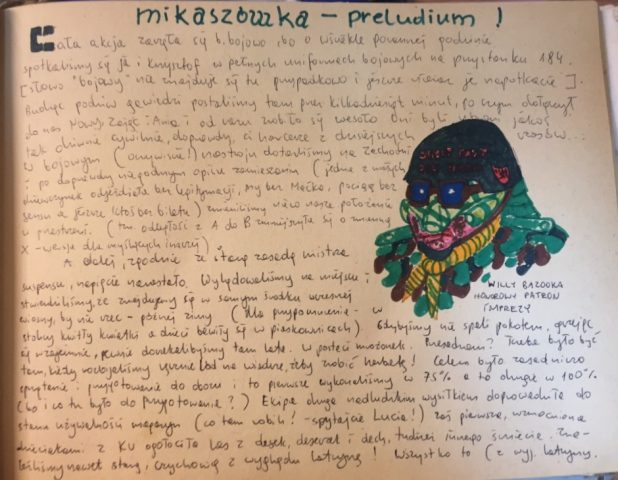 mikaszówka – preludium !
Cała akcja zaczęła się b. bojowo, bo o wściekle porannej godzinie
spotkaliśmy się ja i Krzysztof w pełnych uniformach bojowych na przystanku 184.
[słowo "bojowy" nie znajduje się tu przypadkowo i jeszcze nieraz je napotkacie].
Budząc podziw gawiedzi postaliśmy tam przez kilkadziesiąt minut, po czym dołączył
do nas Nowy Zając i Ania i od razu zrobiło się wesoło. Oni byli jacyś
tak dziwnie cywilnie, doprawdy, ci harcerze z dzisiejszych czasów...
w bojowym (oczywiście!) nastroju dotarliśmy na Zachodni
i po doprawdy niegodnym opisu zamieszaniu (jedna z miłych
dziewczynek odjeżdżała bez legitymacji, my bez Maćka, pociąg bez
sensu a jeszcze ktoś bez biletu) zmieniliśmy nieco nasze położenie
w przestrzeni. (tzn. odległość z A do B zmniejszyła się o znaną
X – wersja dla myślących inaczej)
A dalej, zgodnie ze starą zasadą mistrza
suspensu, napięcie narastało. Wylądowaliśmy na miejscu i
stwierdziliśmy, że znajdujemy się w samym środku wczesnej
wiosny, by nie rzec – późnej zimy (dla przypomnienia – w
stolicy kwitły kwiatki a dzieci bawiły się w piaskownicach). Gdybyśmy nie spali pokotem, grzejąc
się wzajemnie, pewnie doczekalibyśmy tam lata. w postaci mrożonek. Przesadzam? Trzeba było być
tam, kiedy rozbijaliśmy lód na wiadrze, żeby zrobić herbatę! Celem było zasadniczo
sprzątanie i przygotowanie do obozu i to pierwsze wykonaliśmy w 75% a to drugie w 100%
(bo i co tu było do przygotowania?) Ekipa druga nadludzkim wysiłkiem doprowadziła do
stanu używalności (co tam robili? – spytajcie Lucia!) zaś pierwsza, wzmocniona
dzieciakami z KU ogołociła las z desek, desek i dech, tudzież innego śmiecia. Zna-
leźliśmy nawet starą, zużytą z wyglądu latrynę! Wszystko to (z wyj. latryny,
SHOOT FAST
WILLY BAZOOKA
HONOROWY PATRON
IMPREZY